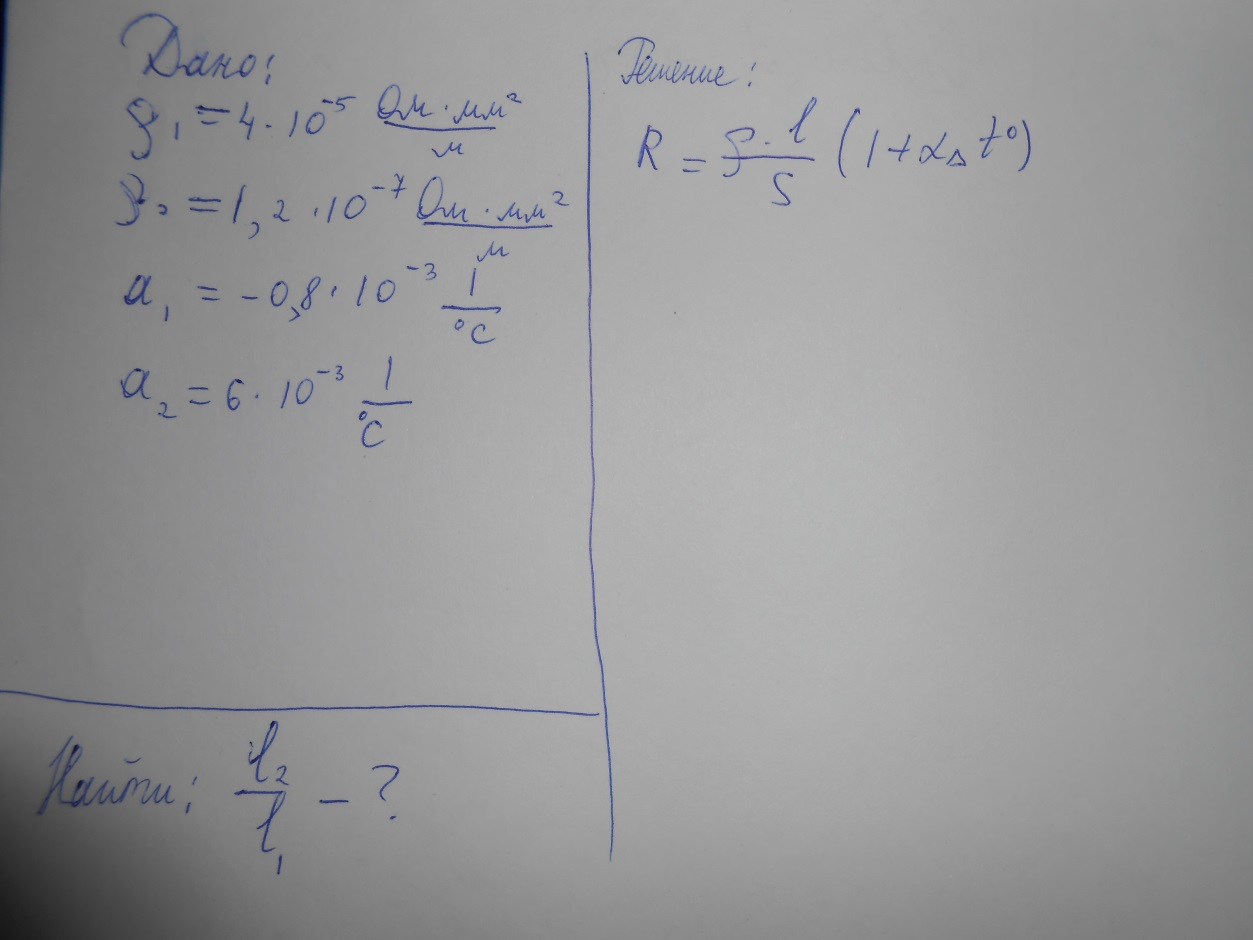 Дано:
ρ₁ = 4 · 10⁻⁵ Ом · мм² / м
ρ₂ = 1,2 · 10⁻⁷ Ом · мм² / м
a₁ = -0,8 · 10⁻³ 1 / °C
a₂ = 6 · 10⁻³ 1 / °C
Найти: l₂ / l₁ - ?
Решение:
R = ρ · l / S (1 + αΔt°)